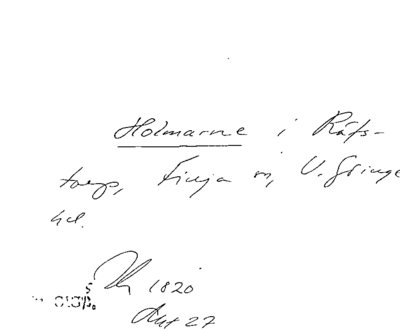 Holmarne i Räfs-
torp, Finja sn, V. Göinge
hd.
1820
Akt 27